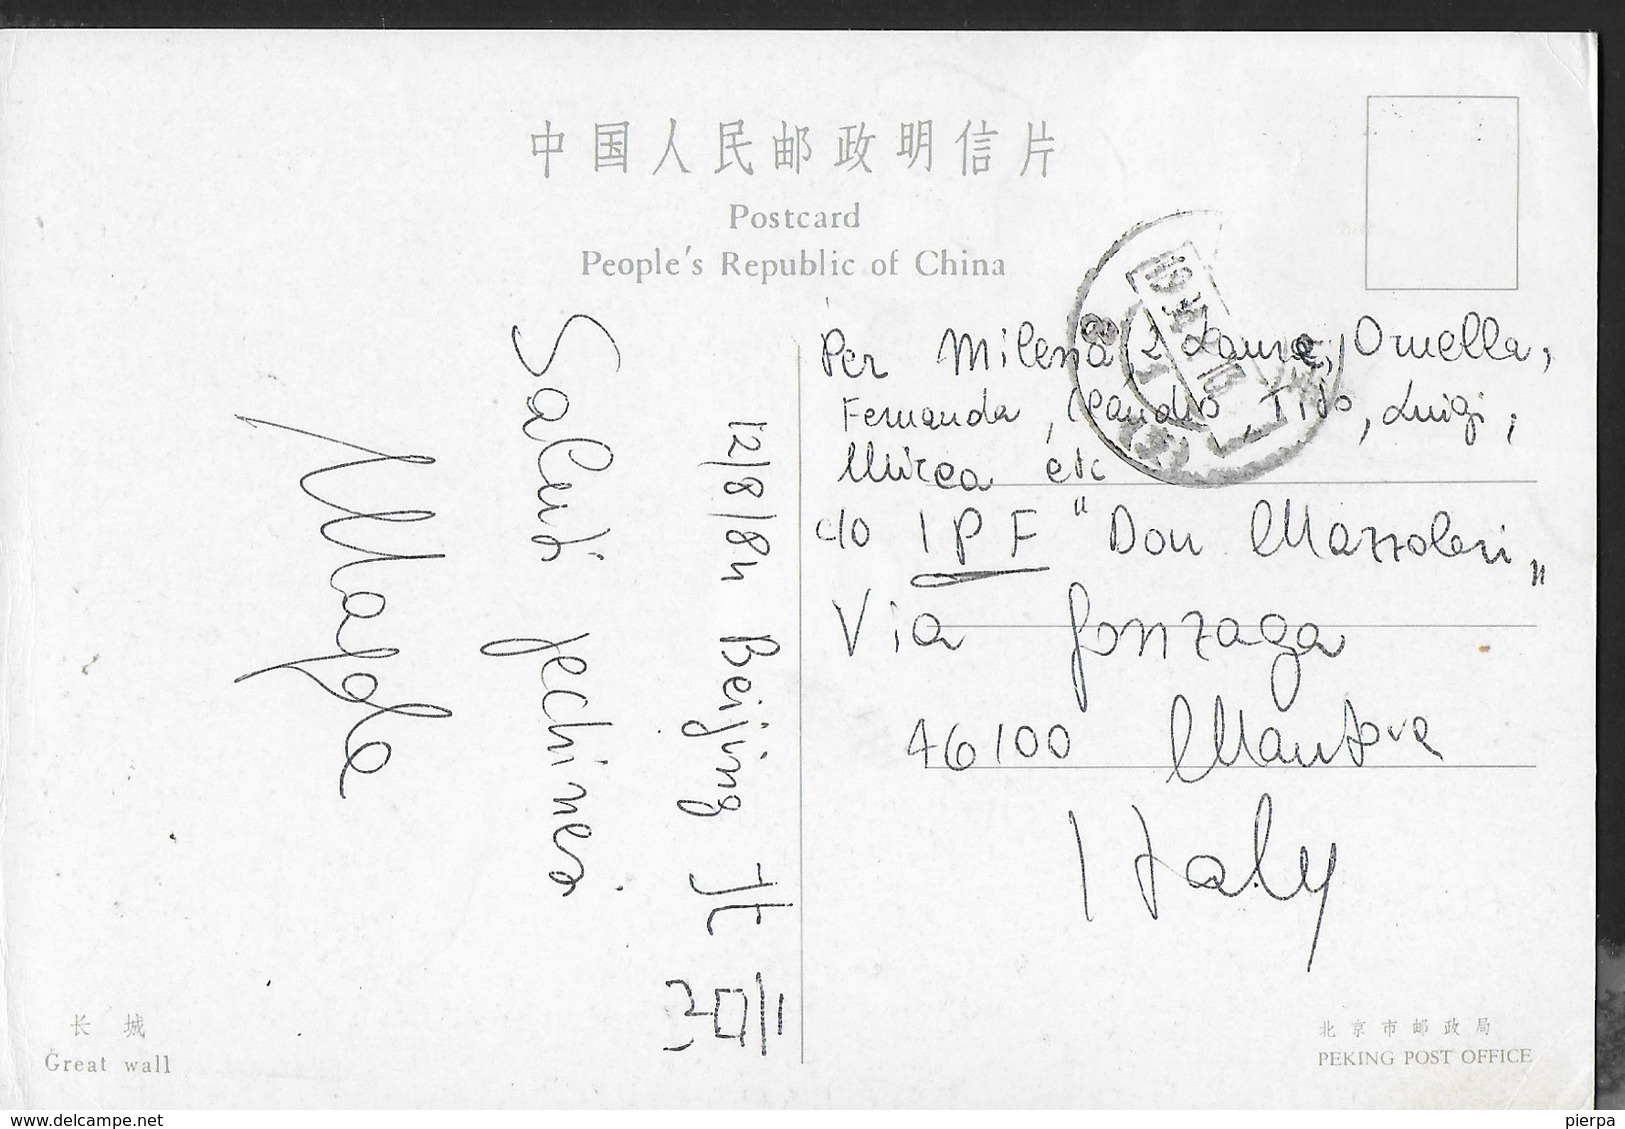 中国人民邮政明信片
Postcard
People's Republic of China
12/8/84 Beijing 北京
Saluti
Magda
Per Milena, 2 Laura, Ornella,
Fernanda, Claudio, Tito, Luigi,
Mirca etc
c/o IPF "Don Mazzoleri"
Via Gonzaga
46100 Mantova
Italy
长城
Great wall
北京市邮政局
PEKING POST OFFICE
pierpa